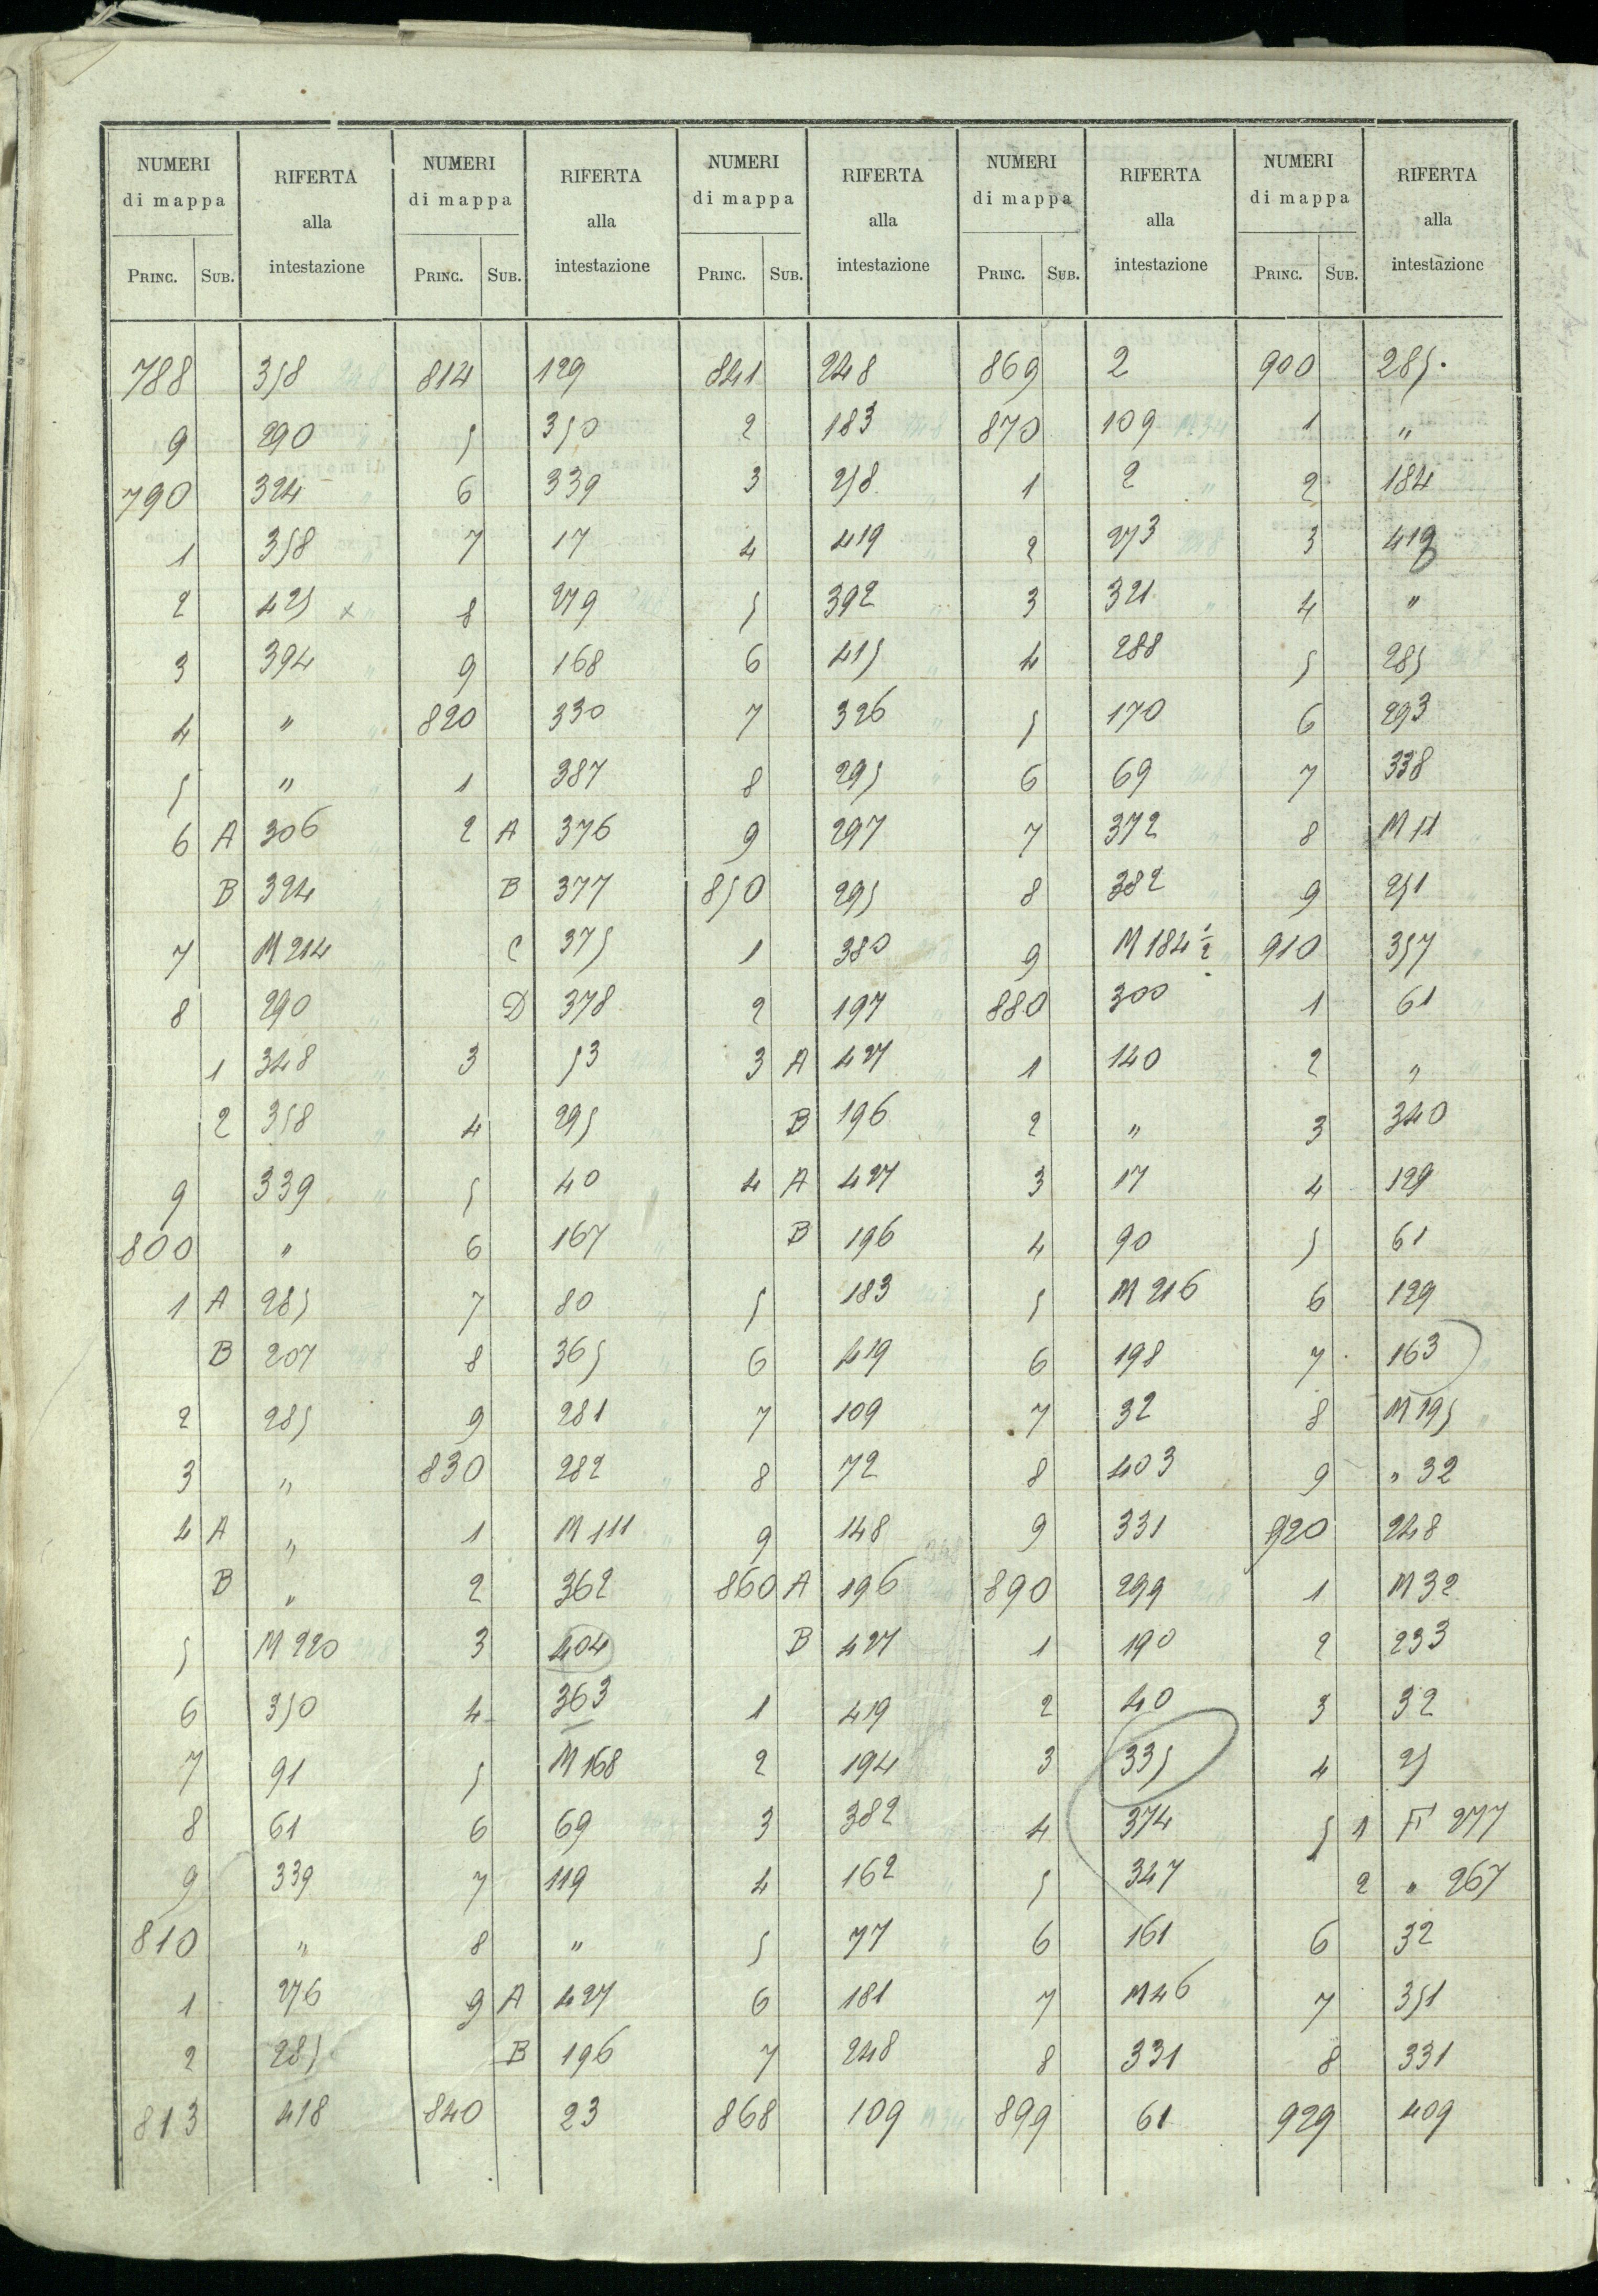 NUMERI di mappa RIFERTA alla intestazione NUMERI di mappa RIFERTA alla intestazione NUMERI di mappa RIFERTA alla intestazione NUMERI di mappa RIFERTA alla intestazione NUMERI di mappa RIFERTA alla intestazione
PRINC. SUB. PRINC. SUB. PRINC. SUB. PRINC. SUB. PRINC. SUB.
788 358 814 129 841 248 869 2 900 285.
9 290 5 350 2 183 870 109 1 "
790 324 6 339 3 258 1 2 2 184
1 358 7 17 4 419 2 273 3 419
2 425 x 8 279 5 392 3 321 4 "
3 394 9 168 6 415 4 288 5 285
4 " 820 330 7 326 5 170 6 293
5 " 1 387 8 295 6 69 7 338
6 A 306 2 A 376 9 297 7 372 8 M 11
B 324 B 377 850 295 8 382 9 251
7 M 214 C 375 1 380 9 M 184 1/2 910 357
8 290 D 378 2 197 880 300 1 61
1 348 3 53 3 A 427 1 140 2 "
2 358 4 295 B 196 2 " 3 340
9 339 5 40 4 A 427 3 17 4 129
800 " 6 167 B 196 4 90 5 61
1 A 285 7 80 5 183 5 M 216 6 129
B 207 8 365 6 419 6 198 7 163
2 285 9 281 7 109 7 32 8 M 195
3 " 830 282 8 72 8 403 9 " 32
4 A " 1 M 111 9 148 9 331 920 248
B " 2 362 860 A 196 890 299 1 M 32
5 M 220 3 404 B 427 1 190 2 233
6 350 4 363 1 419 2 40 3 32
7 91 5 M 168 2 194 3 335 4 25
8 61 6 69 3 382 4 374 5 1 F 277
9 339 7 119 4 162 5 347 2 " 267
810 " 8 " 5 77 6 161 6 32
1 276 9 A 427 6 181 7 M 46 7 351
2 285 B 196 7 248 8 331 8 331
813 418 840 23 868 109 899 61 929 409